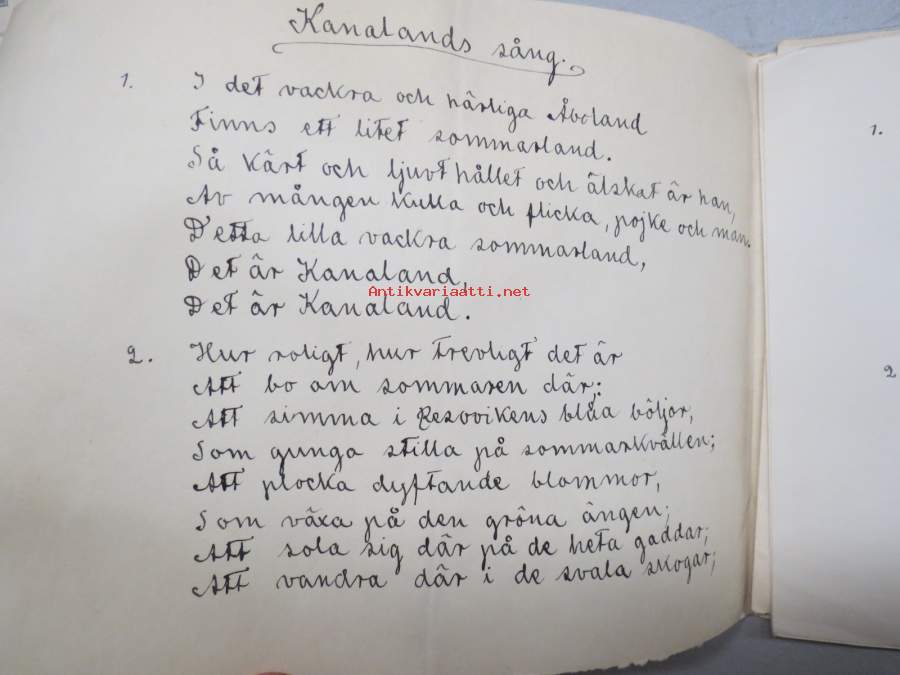 Kanalands sång.
1. I det vackra och härliga Åboland
Finns ett litet sommarland.
Så kärt och ljuvt hållet och älskat är han,
Av mången kulla och flicka, pojke och man.
Detta lilla vackra sommarland,
Det är Kanaland,
Antikvariaatti.net
Det är Kanaland.
2. Hur roligt, hur trevligt det är
Att bo om sommaren där;
Att simma i Resovikens blåa böljor,
Som gunga stilla på sommarkvällen;
Att plocka dyftande blommor,
Som växa på den gröna ängen;
Att sola sig där på de heta gaddar;
Att vandra där i de svala skogar;
1.
2